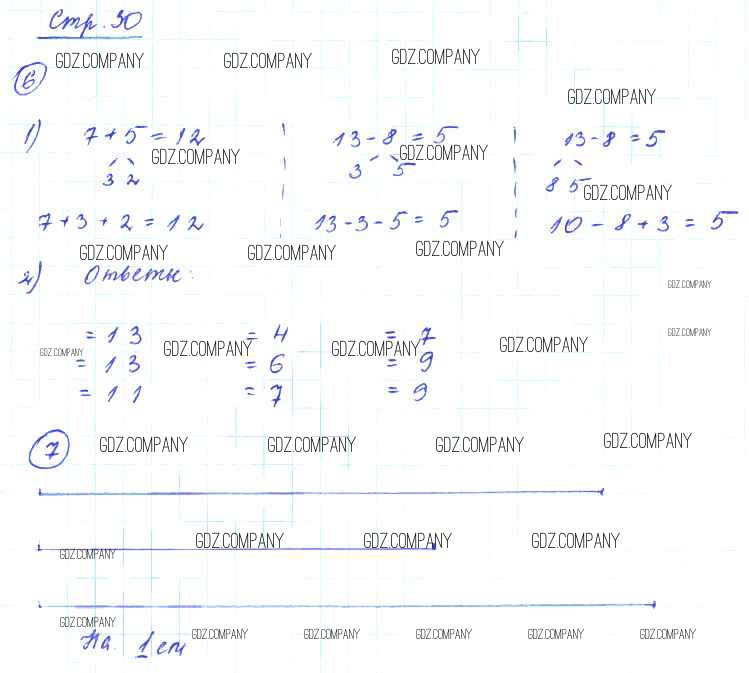 Стр. 30
GDZ.COMPANY GDZ.COMPANY GDZ.COMPANY
6
GDZ.COMPANY
1) 7 + 5 = 12 13 - 8 = 5 13 - 8 = 5
GDZ.COMPANY GDZ.COMPANY
3 2 3 5 8 5
GDZ.COMPANY
7 + 3 + 2 = 12 13 - 3 - 5 = 5 10 - 8 + 3 = 5
GDZ.COMPANY GDZ.COMPANY GDZ.COMPANY
2) Ответы:
GDZ.COMPANY
= 13 = 4 = 7
GDZ.COMPANY
GDZ.COMPANY GDZ.COMPANY GDZ.COMPANY GDZ.COMPANY
= 13 = 6 = 9
= 11 = 7 = 9
7
GDZ.COMPANY GDZ.COMPANY GDZ.COMPANY GDZ.COMPANY
GDZ.COMPANY GDZ.COMPANY GDZ.COMPANY GDZ.COMPANY
GDZ.COMPANY
На 1 см
GDZ.COMPANY GDZ.COMPANY GDZ.COMPANY GDZ.COMPANY GDZ.COMPANY